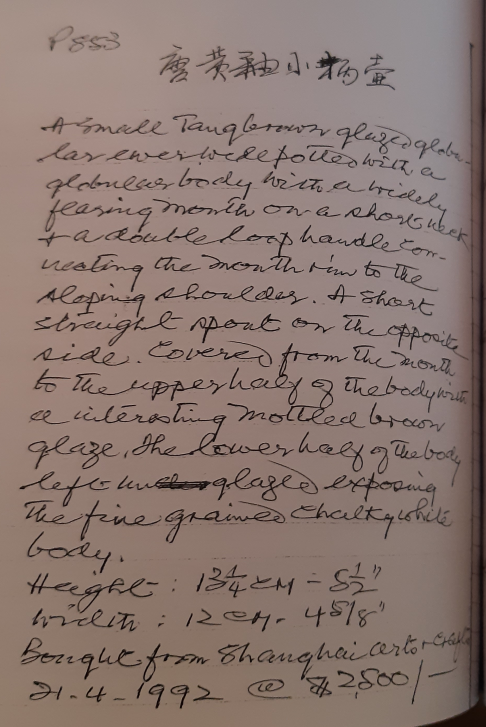 P853
唐黃釉小柄壺
A small Tang brown glazed globu-
lar ewer wide potted with a
globular body with a widely
flaring mouth on a short neck
+ a double loop handle con-
necting the mouth rim to the
sloping shoulder. A short
straight spout on the opposite
side. Covered from the mouth
to the upper half of the body with
a interesting mottled brown
glaze. The lower half of the body
left unglazed exposing
the fine grained chalky white
body.
Height : 13 1/4 cm = 5 1/2"
width : 12 cm - 4 5/8"
Bought from Shanghai arts + crafts
21-4-1992 @ $2,800/-